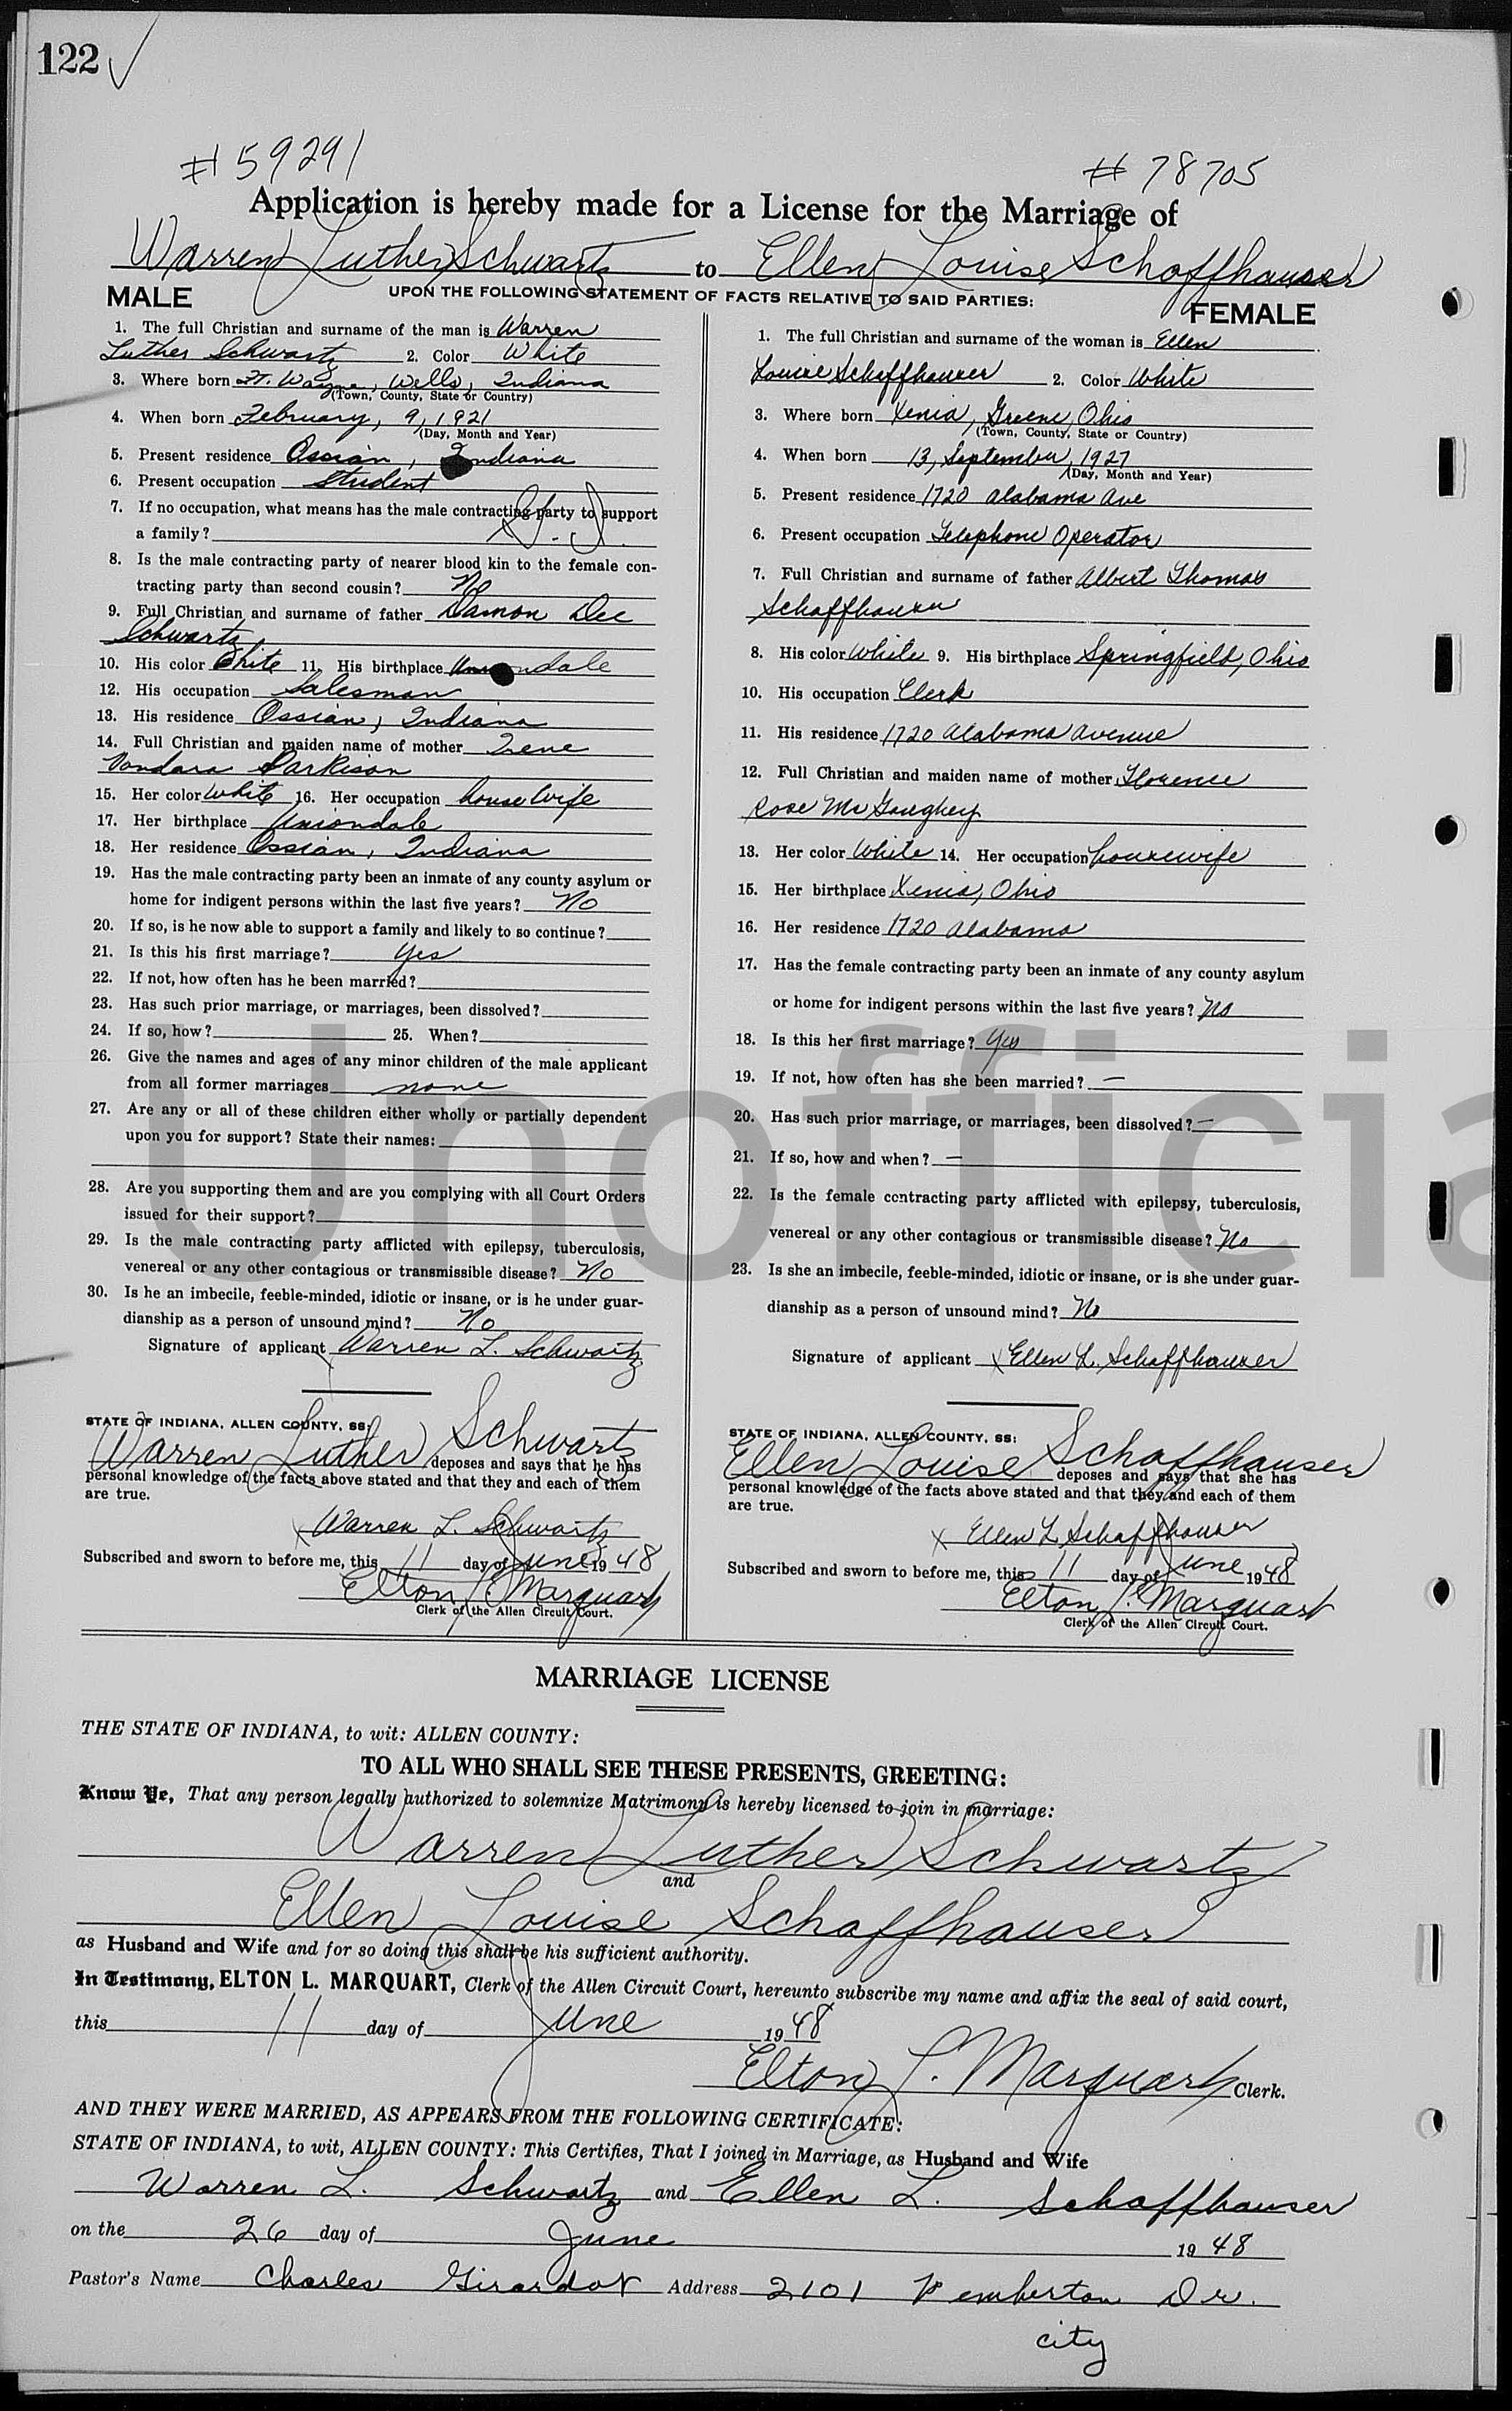 122 ✓
#59291
#78705
Application is hereby made for a License for the Marriage of
Warren Luther Schwartz to Ellen Louise Schaffhauser
UPON THE FOLLOWING STATEMENT OF FACTS RELATIVE TO SAID PARTIES:
MALE
1. The full Christian and surname of the man is Warren
Luther Schwartz 2. Color White
3. Where born Ft. Wayne, Wells, Indiana
(Town, County, State or Country)
4. When born February, 9, 1921
(Day, Month and Year)
5. Present residence Ossian, Indiana
6. Present occupation Student
7. If no occupation, what means has the male contracting party to support
a family?
8. Is the male contracting party of nearer blood kin to the female con-
tracting party than second cousin? No
9. Full Christian and surname of father Damon Dee
Schwartz
10. His color White 11. His birthplace Uniondale
12. His occupation Salesman
13. His residence Ossian, Indiana
14. Full Christian and maiden name of mother Irene
Vondara Parkison
15. Her color White 16. Her occupation housewife
17. Her birthplace Uniondale
18. Her residence Ossian, Indiana
19. Has the male contracting party been an inmate of any county asylum or
home for indigent persons within the last five years? No
20. If so, is he now able to support a family and likely to so continue?
21. Is this his first marriage? Yes
22. If not, how often has he been married?
23. Has such prior marriage, or marriages, been dissolved?
24. If so, how? 25. When?
26. Give the names and ages of any minor children of the male applicant
from all former marriages none
27. Are any or all of these children either wholly or partially dependent
upon you for support? State their names:
28. Are you supporting them and are you complying with all Court Orders
issued for their support?
29. Is the male contracting party afflicted with epilepsy, tuberculosis,
venereal or any other contagious or transmissible disease? No
30. Is he an imbecile, feeble-minded, idiotic or insane, or is he under guar-
dianship as a person of unsound mind? No
Signature of applicant Warren L. Schwartz
STATE OF INDIANA, ALLEN COUNTY, SS:
Warren Luther Schwartz deposes and says that he has
personal knowledge of the facts above stated and that they and each of them
are true.
x Warren L. Schwartz
Subscribed and sworn to before me, this 11 day of June 1948
Elton L. Marquart
Clerk of the Allen Circuit Court.
FEMALE
1. The full Christian and surname of the woman is Ellen
Louise Schaffhauser 2. Color White
3. Where born Xenia, Greene, Ohio
(Town, County, State or Country)
4. When born 13, September, 1927
(Day, Month and Year)
5. Present residence 1720 Alabama Ave
6. Present occupation Telephone Operator
7. Full Christian and surname of father Albert Thomas
Schaffhauser
8. His color White 9. His birthplace Springfield, Ohio
10. His occupation Clerk
11. His residence 1720 Alabama Avenue
12. Full Christian and maiden name of mother Florence
Rose McGaughey
13. Her color White 14. Her occupation housewife
15. Her birthplace Xenia, Ohio
16. Her residence 1720 Alabama
17. Has the female contracting party been an inmate of any county asylum
or home for indigent persons within the last five years? No
18. Is this her first marriage? Yes
19. If not, how often has she been married? —
20. Has such prior marriage, or marriages, been dissolved? —
21. If so, how and when? —
22. Is the female contracting party afflicted with epilepsy, tuberculosis,
venereal or any other contagious or transmissible disease? No
23. Is she an imbecile, feeble-minded, idiotic or insane, or is she under guar-
dianship as a person of unsound mind? No
Signature of applicant x Ellen L. Schaffhauser
STATE OF INDIANA, ALLEN COUNTY, SS:
Ellen Louise Schaffhauser deposes and says that she has
personal knowledge of the facts above stated and that they and each of them
are true.
x Ellen L Schaffhauser
Subscribed and sworn to before me, this 11 day of June 1948
Elton L. Marquart
Clerk of the Allen Circuit Court.
Unofficia
MARRIAGE LICENSE
THE STATE OF INDIANA, to wit: ALLEN COUNTY:
TO ALL WHO SHALL SEE THESE PRESENTS, GREETING:
Know Ye, That any person legally authorized to solemnize Matrimony is hereby licensed to join in marriage:
Warren Luther Schwartz
and
Ellen Louise Schaffhauser
as Husband and Wife and for so doing this shall be his sufficient authority.
In Testimony, ELTON L. MARQUART, Clerk of the Allen Circuit Court, hereunto subscribe my name and affix the seal of said court,
this 11 day of June 1948
Elton L. Marquart Clerk.
AND THEY WERE MARRIED, AS APPEARS FROM THE FOLLOWING CERTIFICATE:
STATE OF INDIANA, to wit, ALLEN COUNTY: This Certifies, That I joined in Marriage, as Husband and Wife
Warren L. Schwartz and Ellen L. Schaffhauser
on the 26 day of June 1948
Pastor's Name Charles Girardot Address 2101 Pemberton Dr.
city